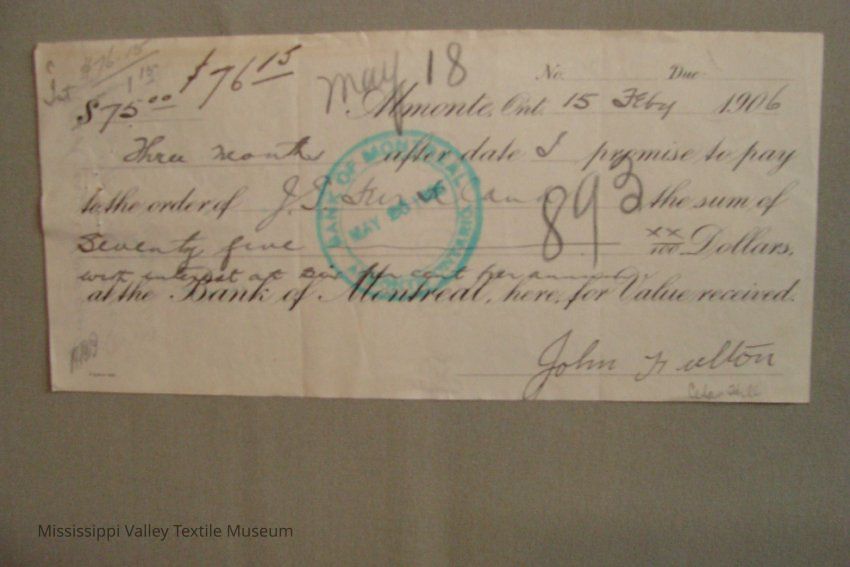 $76.15
Int 1 15
$75.00 $76 15
May 18
No. Due
Almonte, Ont. 15 Feby 1906
Three months after date I promise to pay
to the order of J.S. the sum of
Seventy five xx/100 Dollars,
with interest at six per cent per annum
at the Bank of Montreal, here, for Value received.
893
BANK OF MONTREAL
MAY 1906
ALMONTE ONTARIO
John Fulton
Cedar Hill
Mississippi Valley Textile Museum